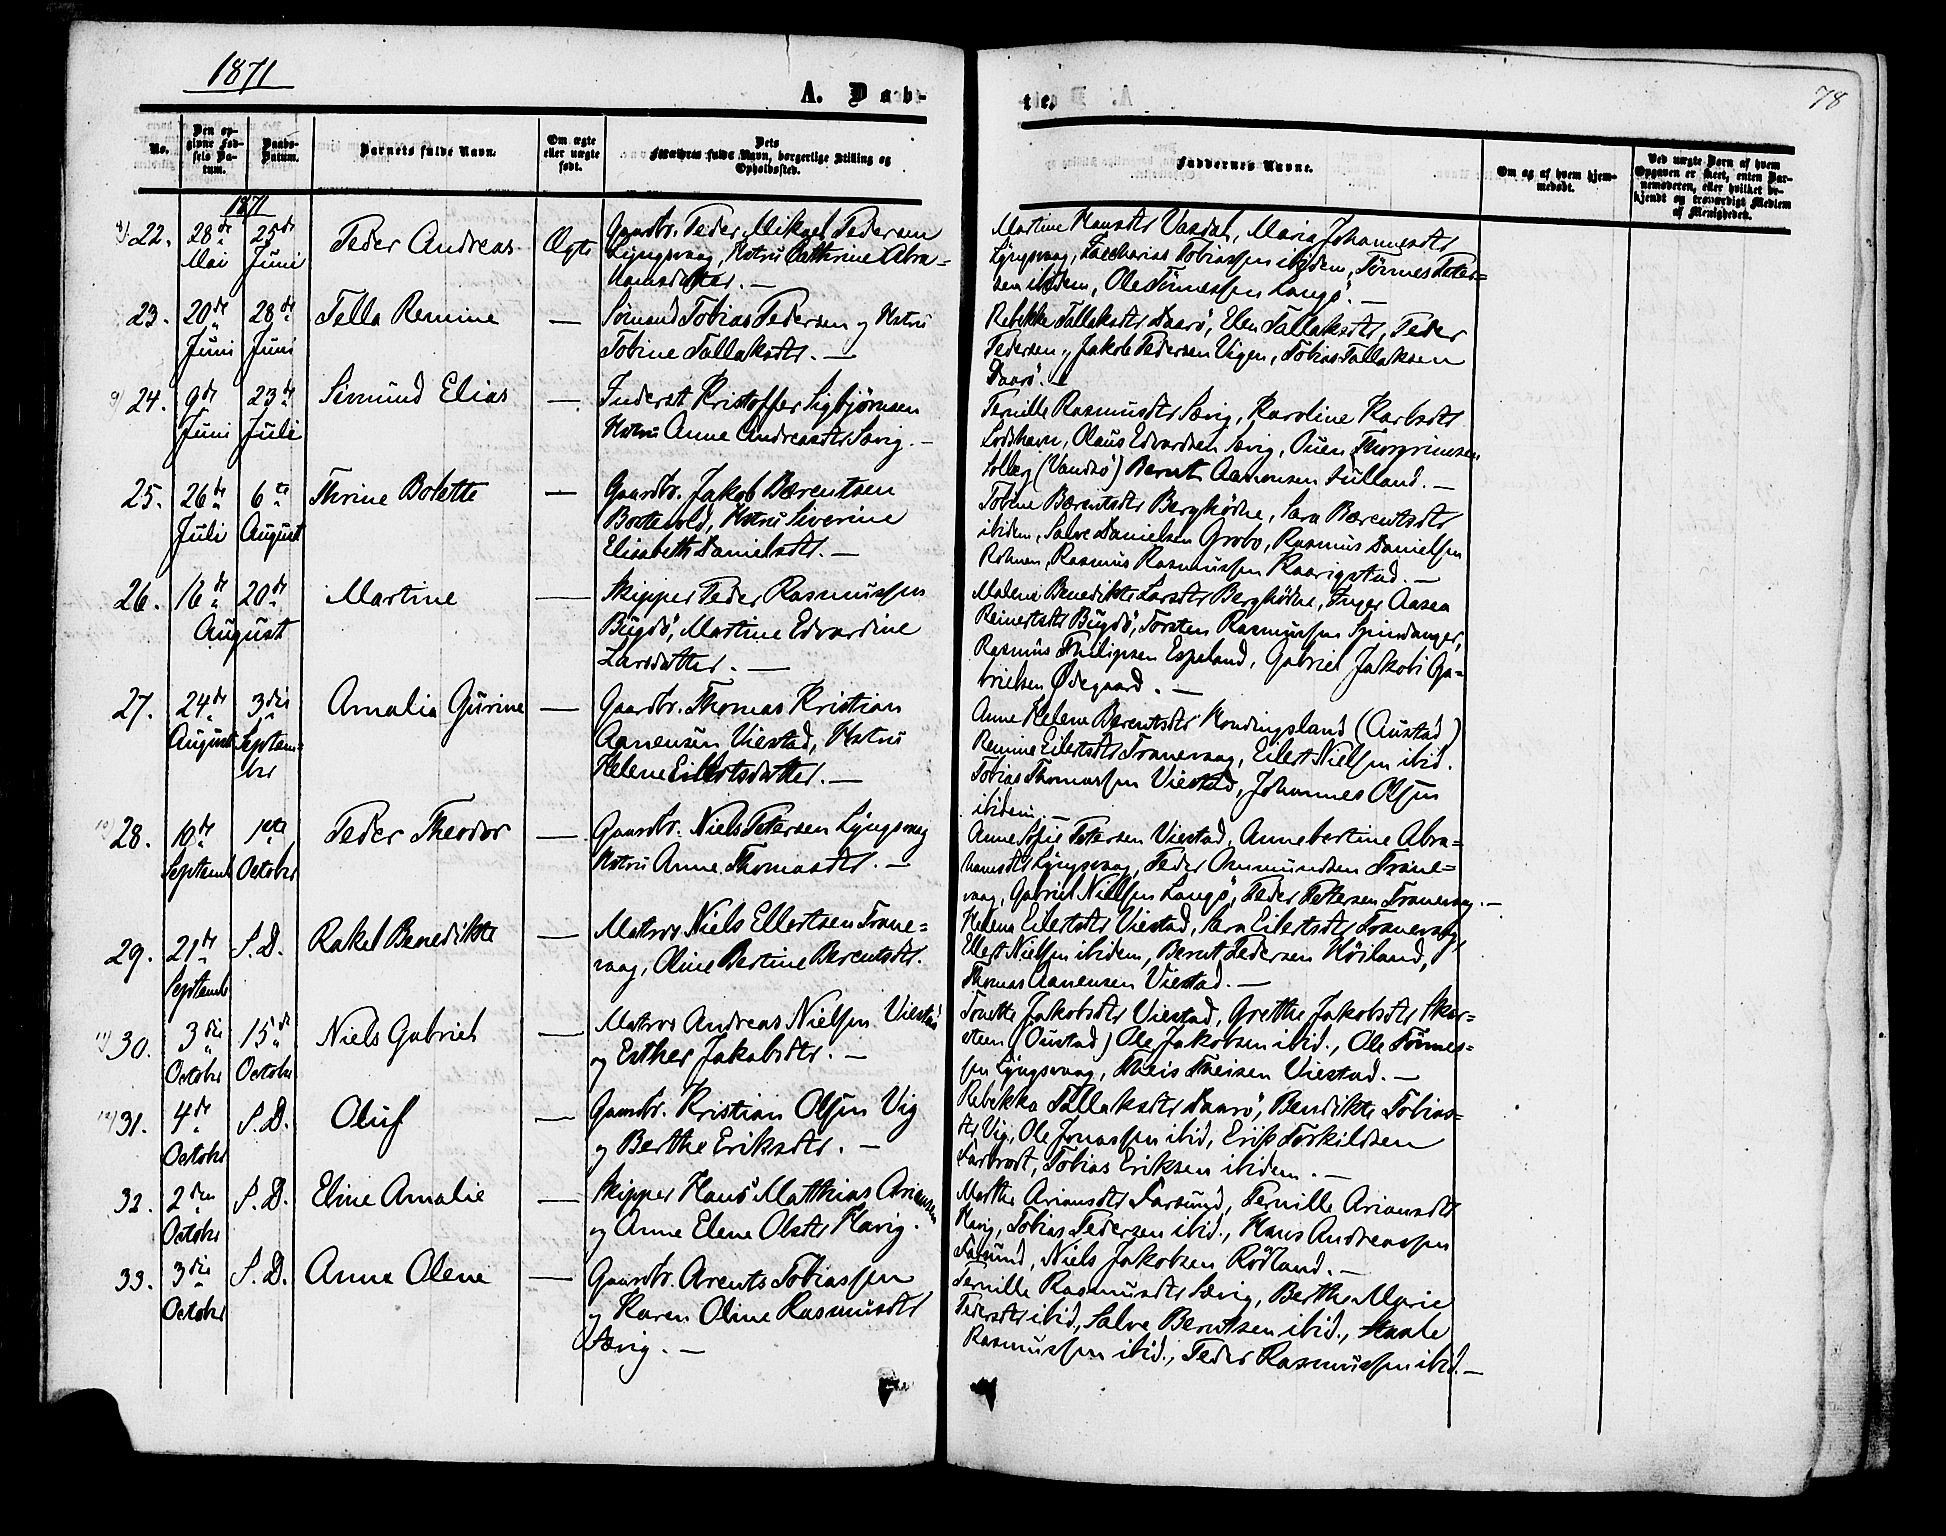 1871
A. Dab-
te.
78
No.
Den op-
givne Fød-
sels Da-
tum.
Daabs-
Datum.
Barnets fulde Navn.
Om ægte
eller uægte
født.
Dets
Forældres fulde Navn, borgerlige Stilling og
Opholdssted.
Faddernes Navne.
Om og af hvem hjem-
medøbt.
Ved uægte Børn af hvem
Opgaven er skeet, enten Bar-
nemoderen, eller hvilket be-
kjendt og troværdigt Medlem
af Menigheden.
1871
22. 28de Mai 25de Juni Peder Andreas Ægte
Gaardbr. Peder Mikael Pedersen
Lyngsvaag, Hstru Cathrine Abra-
hamsdatter. —
Martine Hansdtr Vasdal, Maria Johannesdtr
Lyngsvaag, Zacharias Tobiassen ibidem, Tønnes Peter-
sen ibidem, Ole Tønnessen Langø. —
23. 20de Juni 28de Juni Talla Remine —
Sømand Tobias Pedersen og Hstru
Tobine Tallaksdtr. —
Rebekka Tallaksdtr Daarø, Elen Tallaksdtr, Peder
Pedersen, Jakob Pedersen Vigen, Tobias Tallaksen
Daarø. —
24. 9de Juni 23de Juli Sivmund Elias —
Inderst Kristoffer Sigbjørnsen
Hstru Anne Andreasdtr Sævig. —
Pernille Rasmusdtr Sævig, Karoline Karlsdtr
Lodshavn, Olaus Edvardsen Sævig, Ouen Thorgrimsen
Solberg (Vandsø) Bernt Aanensen Sulland. —
25. 26de Juli 6te August Thrine Bolette —
Gaardbr. Jakob Bærentsen
Bortevold, Hstru Siverine
Elisabeth Danielsdtr. —
Tobine Bærentsdtr Berghødne, Sara Bærentsdtr
ibidem, Salve Danielsen Grobo, Rasmus Danielssen
Rasmus Rasmussen Kaarigstad. —
26. 16de 20de August Martine —
Skipper Peder Rasmussen
Bugdø, Martine Edvardine
Larsdatter. —
Malene Benedikte Larsdtr Berghødne, Inger Aasea
Reinertsdtr Bugdø, Torsten Rasmussen Spindanger,
Rasmus Philipsen Espeland, Gabriel Jakob Ga-
brielsen Ødegaard. —
27. 24de August 3die Septem-
ber Amalia Gurine —
Gaardbr. Thomas Kristian
Aanensen Viestad, Hstru
Helene Eilertsdatter. —
Anne Helene Berentsdtr Hondingsland (Austad)
Remine Eilertsdtr Tranevaag, Eilert Nielsen ibid.
Tobias Thomassen Viestad, Johannes Olsen
ibidem. —
28. 10de Septemb 1ste October Peder Theodor —
Gaardbr. Niels Petersen Lyngsvaag
Hstru Anne Thomasdtr. —
Anne Sofie Petersen Viestad, Annebertine Abra-
hamsdtr Lyngsvaag, Peder Ommundsen Trane-
vaag, Gabriel Nielsen Langø, Peder Pettersen Tranevaag. —
29. 21de Septemb S. D. Rakel Benedikte —
Matros Niels Ellertsen Trane-
vaag, Oline Bertine Berentsdtr.
Helena Eilertsdtr Viestad, Sara Eilertsdtr Tranevaag,
Ellert Nielsen ibidem, Bernt Pedersen Høiland,
Thomas Aanensen Viestad. —
30. 3die October 15de October Niels Gabriel —
Matros Andreas Nielsen Viestad
og Esther Jakobsdtr. —
Tonette Jakobsdtr Viestad, Grethe Jakobsdtr Skar-
steen (Oustad) Ole Jakobsen ibid., Ole Tønnes-
sen Lyngsvaag, Theis Theisen Viestad. —
31. 4de October S. D. Oluf —
Gaardbr. Kristian Olsen Vig
og Berthe Eriksdtr. —
Rebekka Tallaksdtr Daarø, Bendikte Tobias-
dtr Vig, Ole Jonassen ibid, Erik Torkildsen
Farbrot, Tobias Eriksen ibidem. —
32. 2den October S. D. Eline Amalie —
Skipper Hans Matthias Ariansen
og Anne Elene Olsdtr Havig.
Marthe Ariansdtr Farsund, Pernille Ariansdtr
Havig, Tobias Pedersen ibid., Hans Andreassen
Farsund, Niels Jakobsen Rødland. —
33. 3die October S. D. Anna Olene —
Gaardbr. Arents Tobiassen
og Karen Oline Rasmusdtr
Sævig. —
Pernille Rasmusdtr Sævig, Berthe Marie
Pedersdtr ibid., Salve Berntsen ibid., Staale
Rasmussen ibid., Peder Rasmussen ibid. —